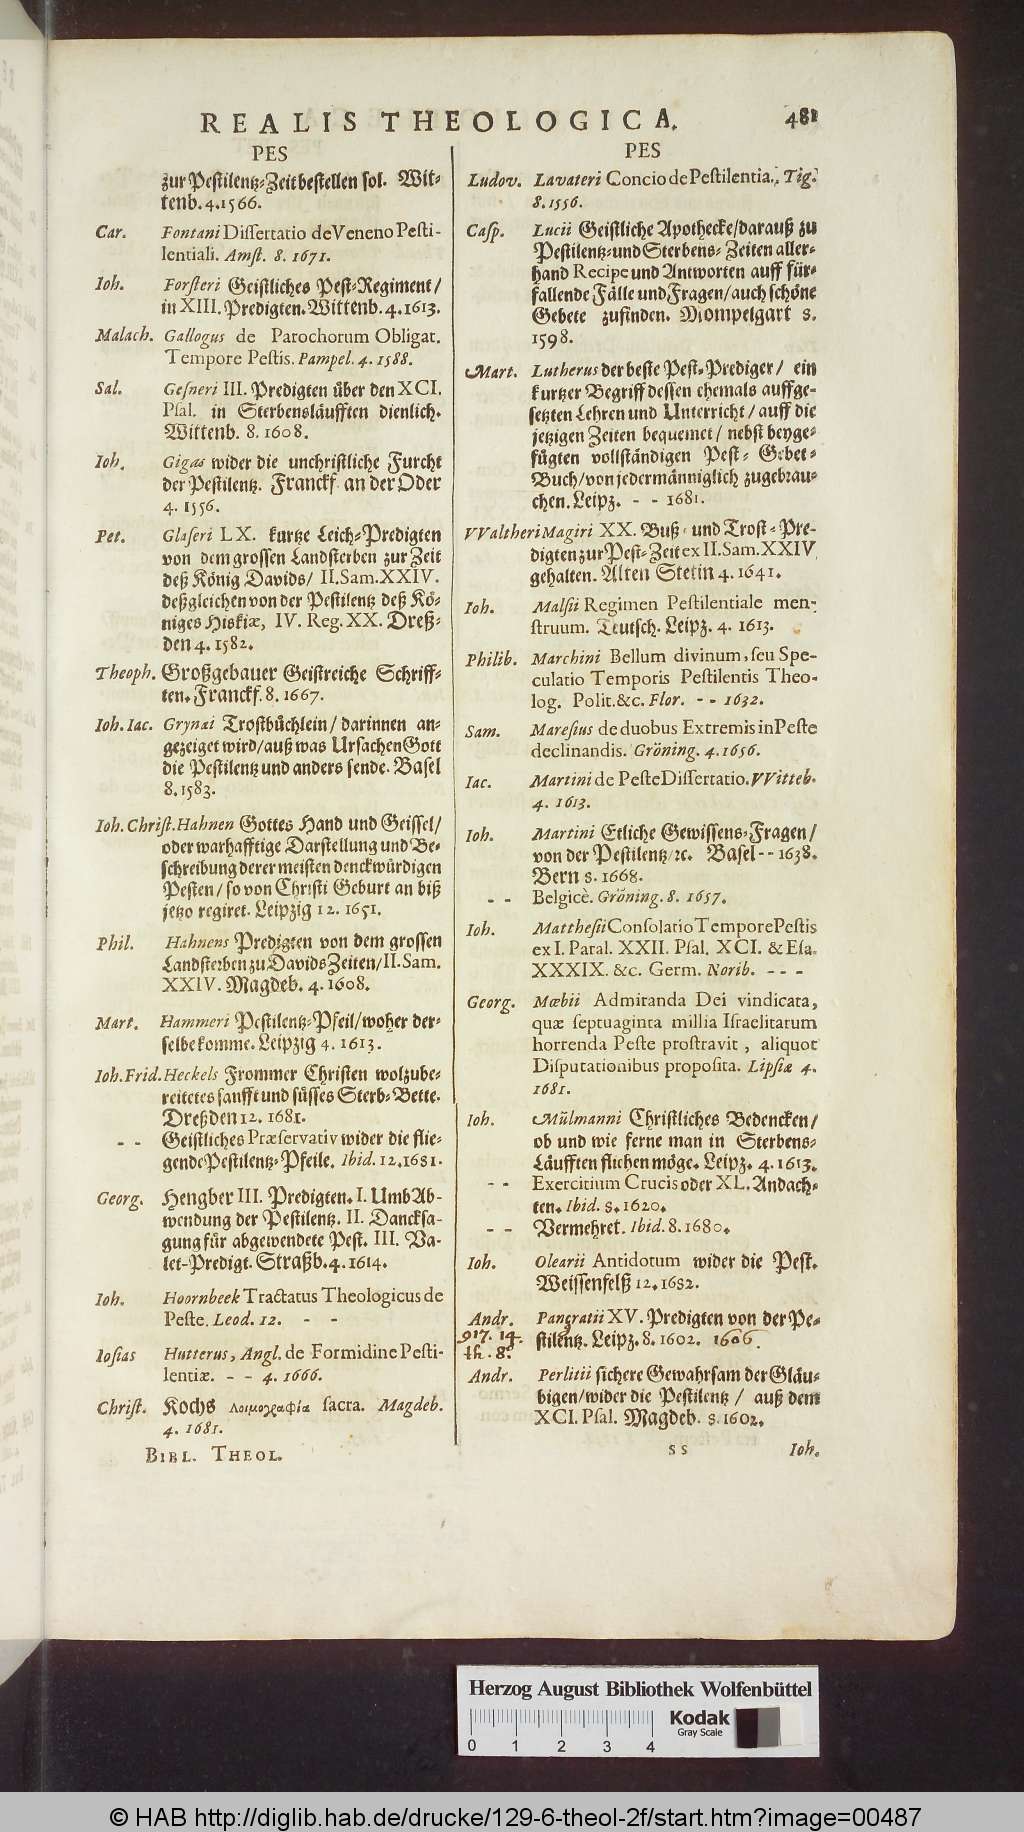 REALIS THEOLOGICA. 481
PES
zur Peſtilentz-Zeit beſtellen ſol. Wit-
tenb. 4. 1566.
Car. Fontani Diſſertatio de Veneno Peſti-
lentiali. Amſt. 8. 1671.
Ioh. Forſteri Geiſtliches Peſt-Regiment/
in XIII. Predigten. Wittenb. 4. 1613.
Malach. Gallogus de Parochorum Obligat.
Tempore Peſtis. Pampel. 4. 1588.
Sal. Geſneri III. Predigten über den XCI.
Pſal. in Sterbensläufften dienlich.
Wittenb. 8. 1608.
Ioh. Gigas wider die unchriſtliche Furcht
der Peſtilentz. Franckf. an der Oder
4. 1556.
Pet. Glaſeri LX. kurtze Leich-Predigten
von dem groſſen Landſterben zur Zeit
deß König Davids/ II. Sam. XXIV.
deßgleichen von der Peſtilentz deß Kö-
niges Hiskiæ, IV. Reg. XX. Dreß-
den 4. 1582.
Theoph. Großgebauer Geiſtreiche Schriff-
ten. Franckf. 8. 1667.
Ioh. Iac. Grynæi Troſtbüchlein/ darinnen an-
gezeiget wird/ auß was Urſachen Gott
die Peſtilentz und anders ſende. Baſel
8. 1583.
Ioh. Chriſt. Hahnen Gottes Hand und Geiſſel/
oder warhafftige Darſtellung und Be-
ſchreibung derer meiſten denckwürdigen
Peſten/ ſo von Chriſti Geburt an biß
jetzo regiret. Leipzig 12. 1651.
Phil. Hahnens Predigten von dem groſſen
Landſterben zu Davids Zeiten/ II. Sam.
XXIV. Magdeb. 4. 1608.
Mart. Hammeri Peſtilentz-Pfeil/ woher der-
ſelbe komme. Leipzig 4. 1613.
Ioh. Frid. Heckels Frommer Chriſten wolzube-
reitetes ſanfft und ſüſſes Sterb-Bette.
Dreßden 12. 1681.
- - Geiſtliches Præſervativ wider die flie-
gende Peſtilentz-Pfeile. Ibid. 12. 1681.
Georg. Hengber III. Predigten. I. Umb Ab-
wendung der Peſtilentz. II. Danckſa-
gung für abgewendete Peſt. III. Va-
let-Predigt. Straßb. 4. 1614.
Ioh. Hoornbeek Tractatus Theologicus de
Peſte. Leod. 12. - -
Ioſias Hutterus, Angl. de Formidine Peſti-
lentiæ. - - 4. 1666.
Chriſt. Kochs Λοιμογραφία ſacra. Magdeb.
4. 1681.
BIBL. THEOL.
PES
Ludov. Lavateri Concio de Peſtilentia. Tig.
8. 1556.
Caſp. Lucii Geiſtliche Apothecke/ darauß zu
Peſtilentz- und Sterbens-Zeiten aller-
hand Recipe und Antworten auff für-
fallende Fälle und Fragen/ auch ſchöne
Gebete zufinden. Mompelgart 8.
1598.
Mart. Lutherus der beſte Peſt-Prediger/ ein
kurtzer Begriff deſſen ehemals auffge-
ſetzten Lehren und Unterricht/ auff die
jetzigen Zeiten bequemet/ nebſt beyge-
fügten vollſtändigen Peſt-Gebet-
Buch/ von jedermänniglich zugebrau-
chen. Leipz. - - 1681.
VValtheri Magiri XX. Buß- und Troſt-Pre-
digten zur Peſt-Zeit ex II. Sam. XXIV.
gehalten. Alten Stetin 4. 1641.
Ioh. Malſii Regimen Peſtilentiale men-
ſtruum. Teutſch. Leipz. 4. 1613.
Philib. Marchini Bellum divinum, ſeu Spe-
culatio Temporis Peſtilentis Theo-
log. Polit. &c. Flor. - - 1632.
Sam. Mareſius de duobus Extremis in Peſte
declinandis. Gröning. 4. 1656.
Iac. Martini de Peſte Diſſertatio. VVitteb.
4. 1613.
Ioh. Martini Etliche Gewiſſens-Fragen/
von der Peſtilentz/ ꝛc. Baſel - - 1638.
Bern 8. 1668.
- - Belgicè. Gröning. 8. 1657.
Ioh. Mattheſii Conſolatio Tempore Peſtis
ex I. Paral. XXII. Pſal. XCI. & Eſa.
XXXIX. &c. Germ. Norib. - - -
Georg. Mœbii Admiranda Dei vindicata,
quæ ſeptuaginta millia Iſraelitarum
horrenda Peſte proſtravit, aliquot
Diſputationibus propoſita. Lipſiæ 4.
1681.
Ioh. Mülmanni Chriſtliches Bedencken/
ob und wie ferne man in Sterbens-
Läufften fliehen möge. Leipz. 4. 1613.
- - Exercitium Crucis oder XL. Andach-
ten. Ibid. 8. 1620.
- - Vermehret. Ibid. 8. 1680.
Ioh. Olearii Antidotum wider die Peſt.
Weiſſenfelß 12. 1682.
Andr. Pangratii XV. Predigten von der Pe-
ſtilentz. Leipz. 8. 1602. 1606.
917. 14.
th. 8º
Andr. Perlitii ſichere Gewahrſam der Gläu-
bigen/ wider die Peſtilentz/ auß dem
XCI. Pſal. Magdeb. 8. 1602.
SS Ioh.
Herzog August Bibliothek Wolfenbüttel
Kodak
Gray Scale
0 1 2 3 4
© HAB http://diglib.hab.de/drucke/129-6-theol-2f/start.htm?image=00487